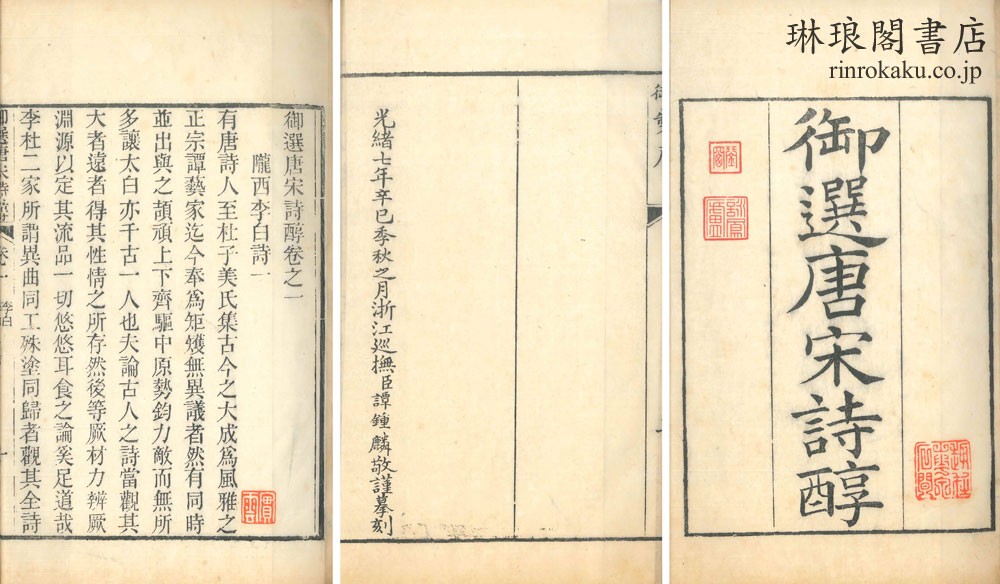 琳琅閣書店
rinrokaku.co.jp
御選唐宋詩醇
光緒七年辛巳季秋之月浙江巡撫臣譚鍾麟敬謹摹刻
御選唐宋詩醇卷之一
隴西李白詩一
有唐詩人至杜子美氏集古今之大成為風雅之
正宗譚藝家迄今奉為矩矱無異議者然有同時
並出與之頡頏上下齊驅中原勢鈞力敵而無所
多讓太白亦千古一人也夫論古人之詩當觀其
大者遠者得其性情之所存然後等厥材力辨厥
淵源以定其流品一切悠悠耳食之論奚足道哉
李杜二家所謂異曲同工殊塗同歸者觀其全詩
卷一 李白 一